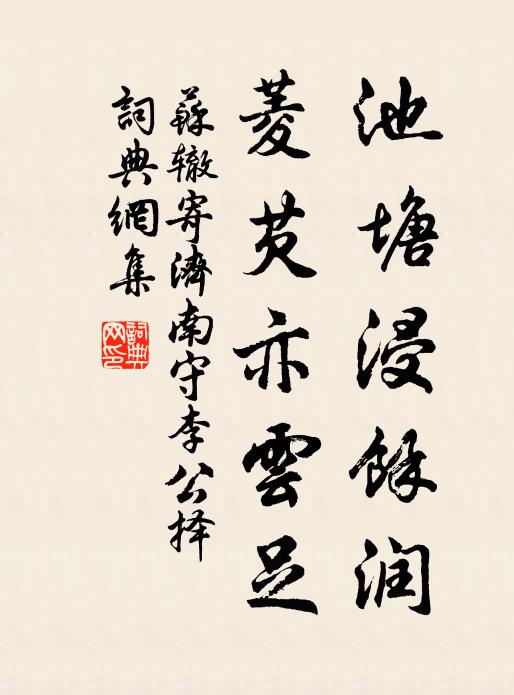 池塘浸餘润
菱芡亦雲足
蘇辙寄濟南守李公择
詞典網集
詞典网印